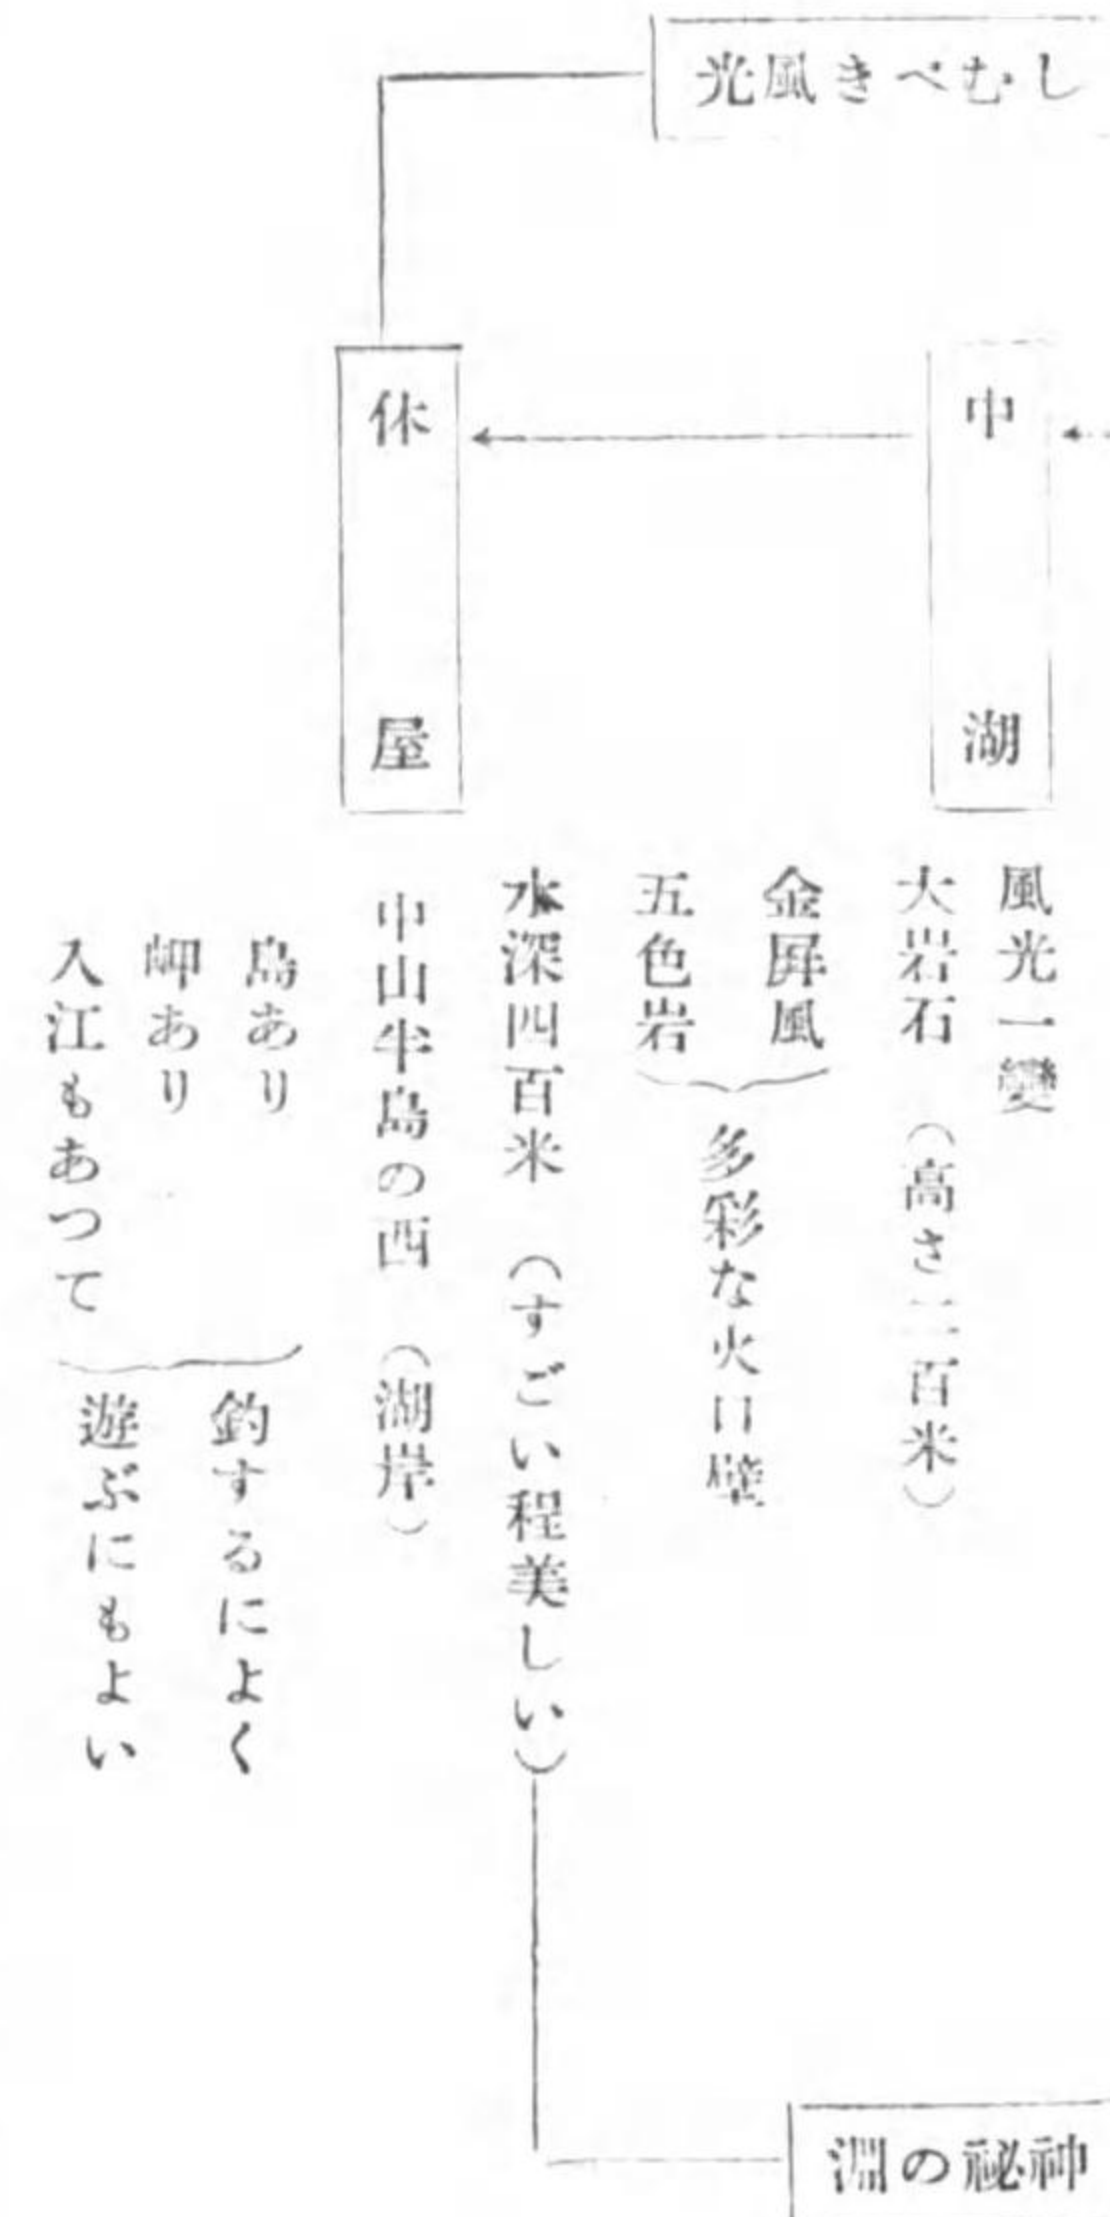 しむべき風光
中湖
風光一變
大岩石 （高さ二百米）
金屏風
五色岩
多彩な火口壁
水深四百米 （すごい程美しい）
神秘の淵
休屋
中山半島の西 （湖岸）
島あり
岬あり
入江もあつて
釣するによく
遊ぶにもよい